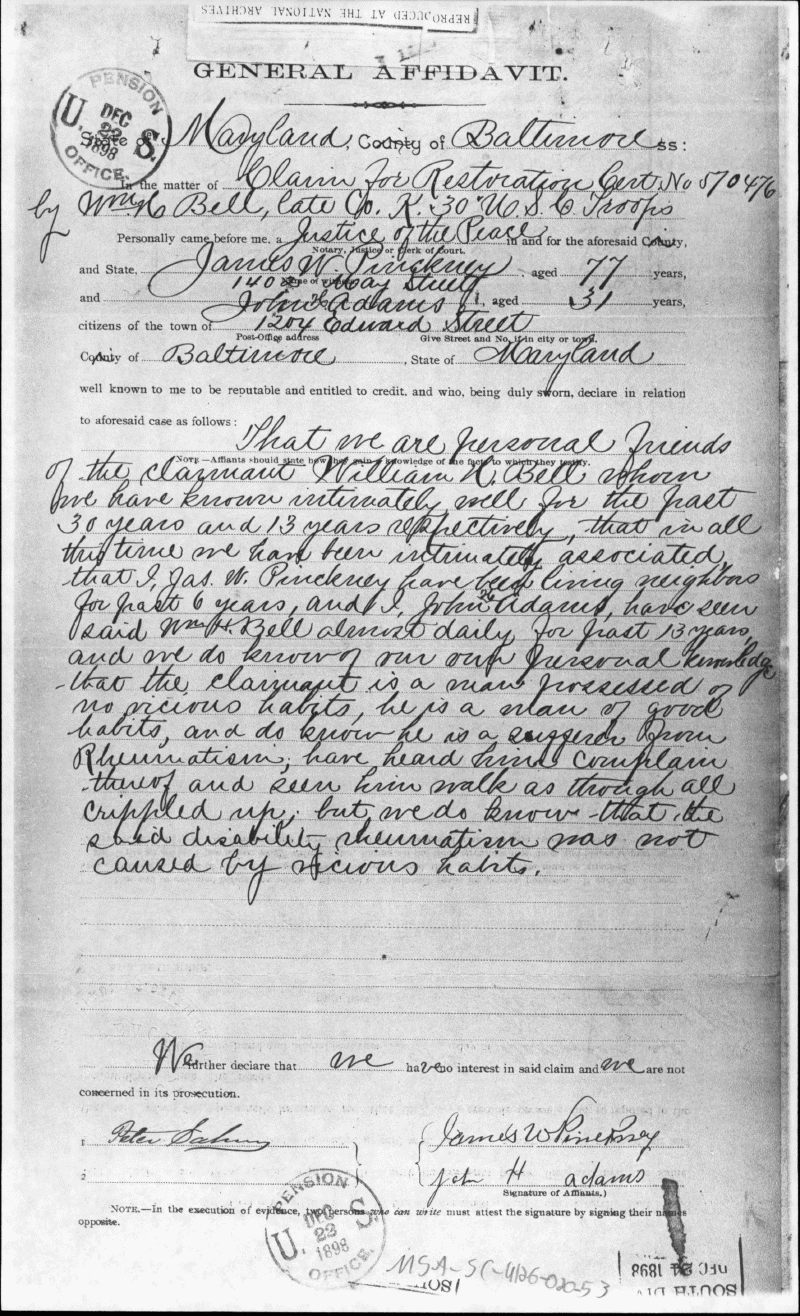 REPRODUCED AT THE NATIONAL ARCHIVES
GENERAL AFFIDAVIT.
PENSION OFFICE.
U. S.
DEC
22
1898
State of Maryland, County of Baltimore ss:
In the matter of Claim for Restoration Cert. No 570476
by Wm H Bell, late Co. K. 30" U. S. C Troops
Personally came before me, a Justice of the Peace in and for the aforesaid County,
Notary, Justice or Clerk of Court.
and State, James W. Pinckney, aged 77 years,
1408 May Street
and John H Adams, aged 31 years,
citizens of the town of 1204 Edward Street
Post-Office address Give Street and No. if in city or town.
County of Baltimore, State of Maryland
well known to me to be reputable and entitled to credit, and who, being duly sworn, declare in relation
to aforesaid case as follows:
That we are personal friends
NOTE.—Affiants should state how they gain a knowledge of the facts to which they testify.
of the claimant William H. Bell whom
we have known intimately well for the past
30 years and 13 years respectively, that in all
this time we have been intimately associated,
that I, Jas. W. Pinckney have been living neighbors
for past 6 years, and I, John H Adams, have seen
said Wm H. Bell almost daily for past 13 years,
and we do know of our own personal knowledge
that the claimant is a man possessed of
no vicious habits, he is a man of good
habits, and do know he is a sufferer from
Rheumatism, have heard him complain
thereof and seen him walk as though all
crippled up, but we do know that the
said disability rheumatism was not
caused by vicious habits.
We further declare that we have no interest in said claim and we are not
concerned in its prosecution.
1 Peter James W Pinckney
2 John H adams
Signature of Affiants.)
PENSION OFFICE.
U. S.
DEC
22
1898
NOTE.—In the execution of evidence, two persons who can write must attest the signature by signing their names
opposite.
MSA-SC-4126-020-53
DEC 24 1898
SOUTH DIV